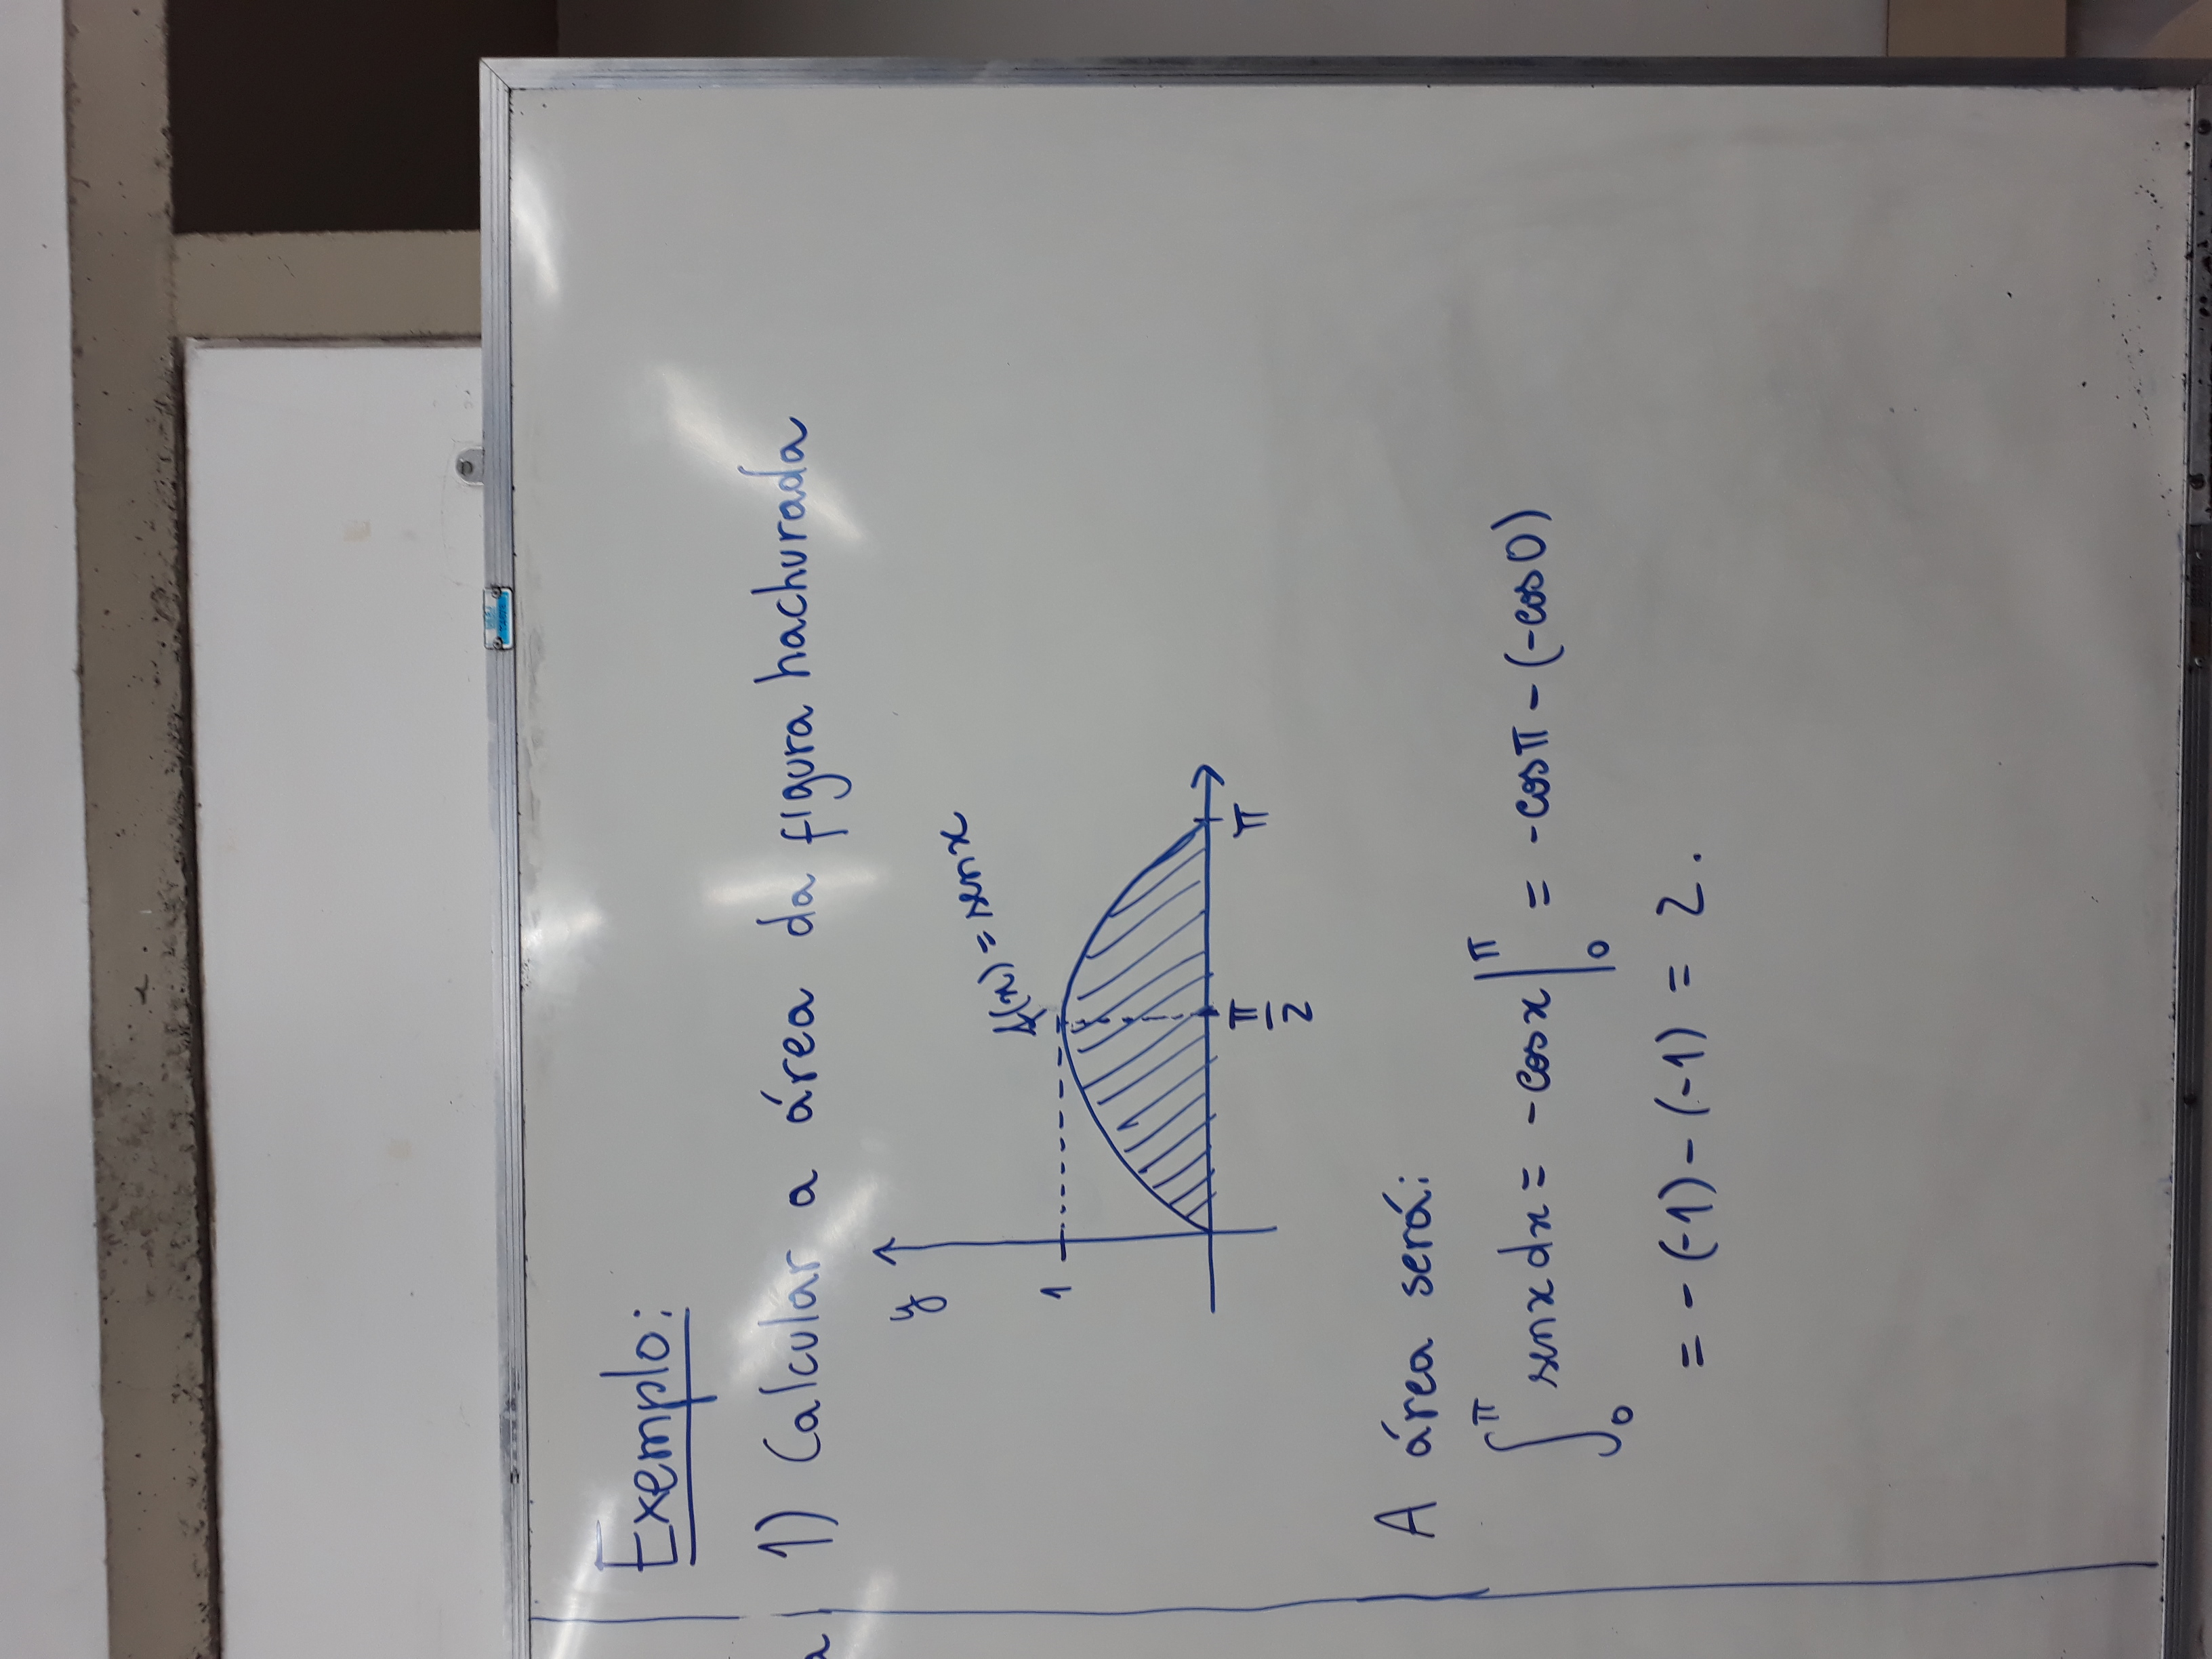 Exemplo:
a
1) Calcular a área da figura hachurada
y
f(x) = senx
1
π/2
π
A área será:
∫₀^π senx dx = -cosx |₀^π = -cosπ - (-cos0)
= -(-1) - (-1) = 2.